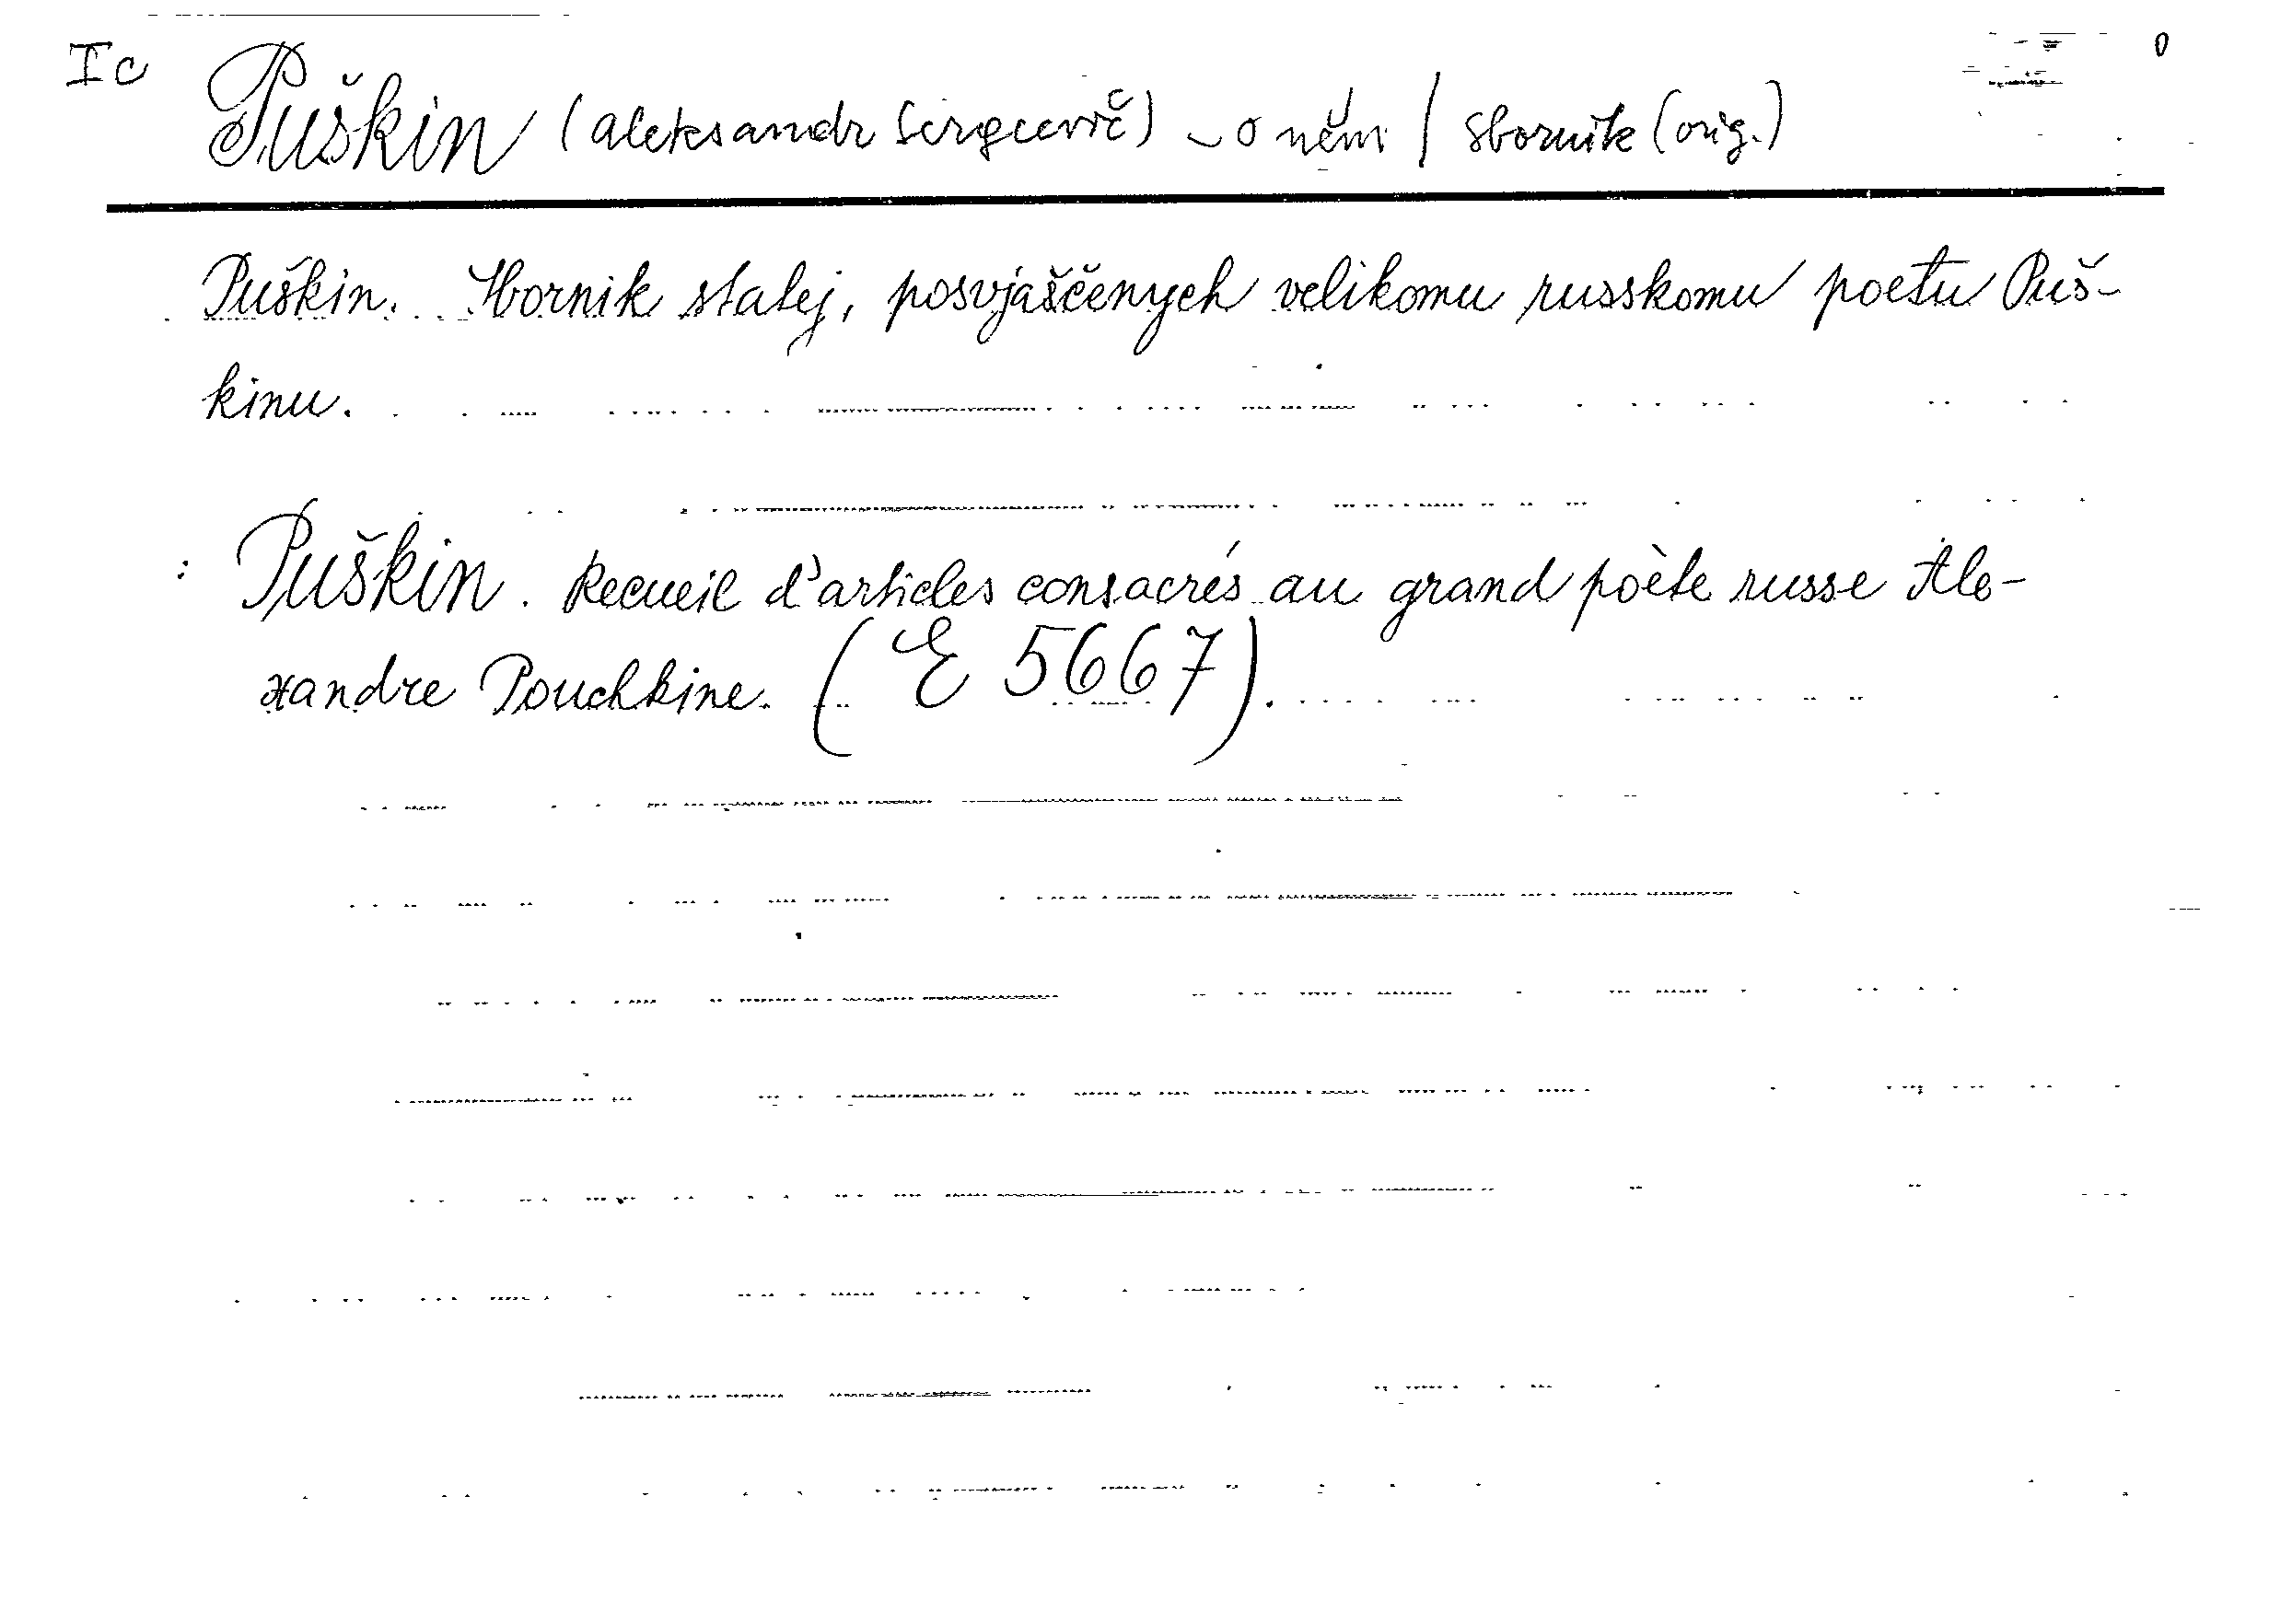 Ic Puškin (Aleksandr Sergeevič) – o něm / sborník (orig.) 0
Puškin. Sbornik statej, posvjaščenych velikomu russkomu poetu Puš-
kinu.
: Puškin. Recueil d'articles consacrés au grand poète russe Ale-
xandre Pouchkine. (E 5667).